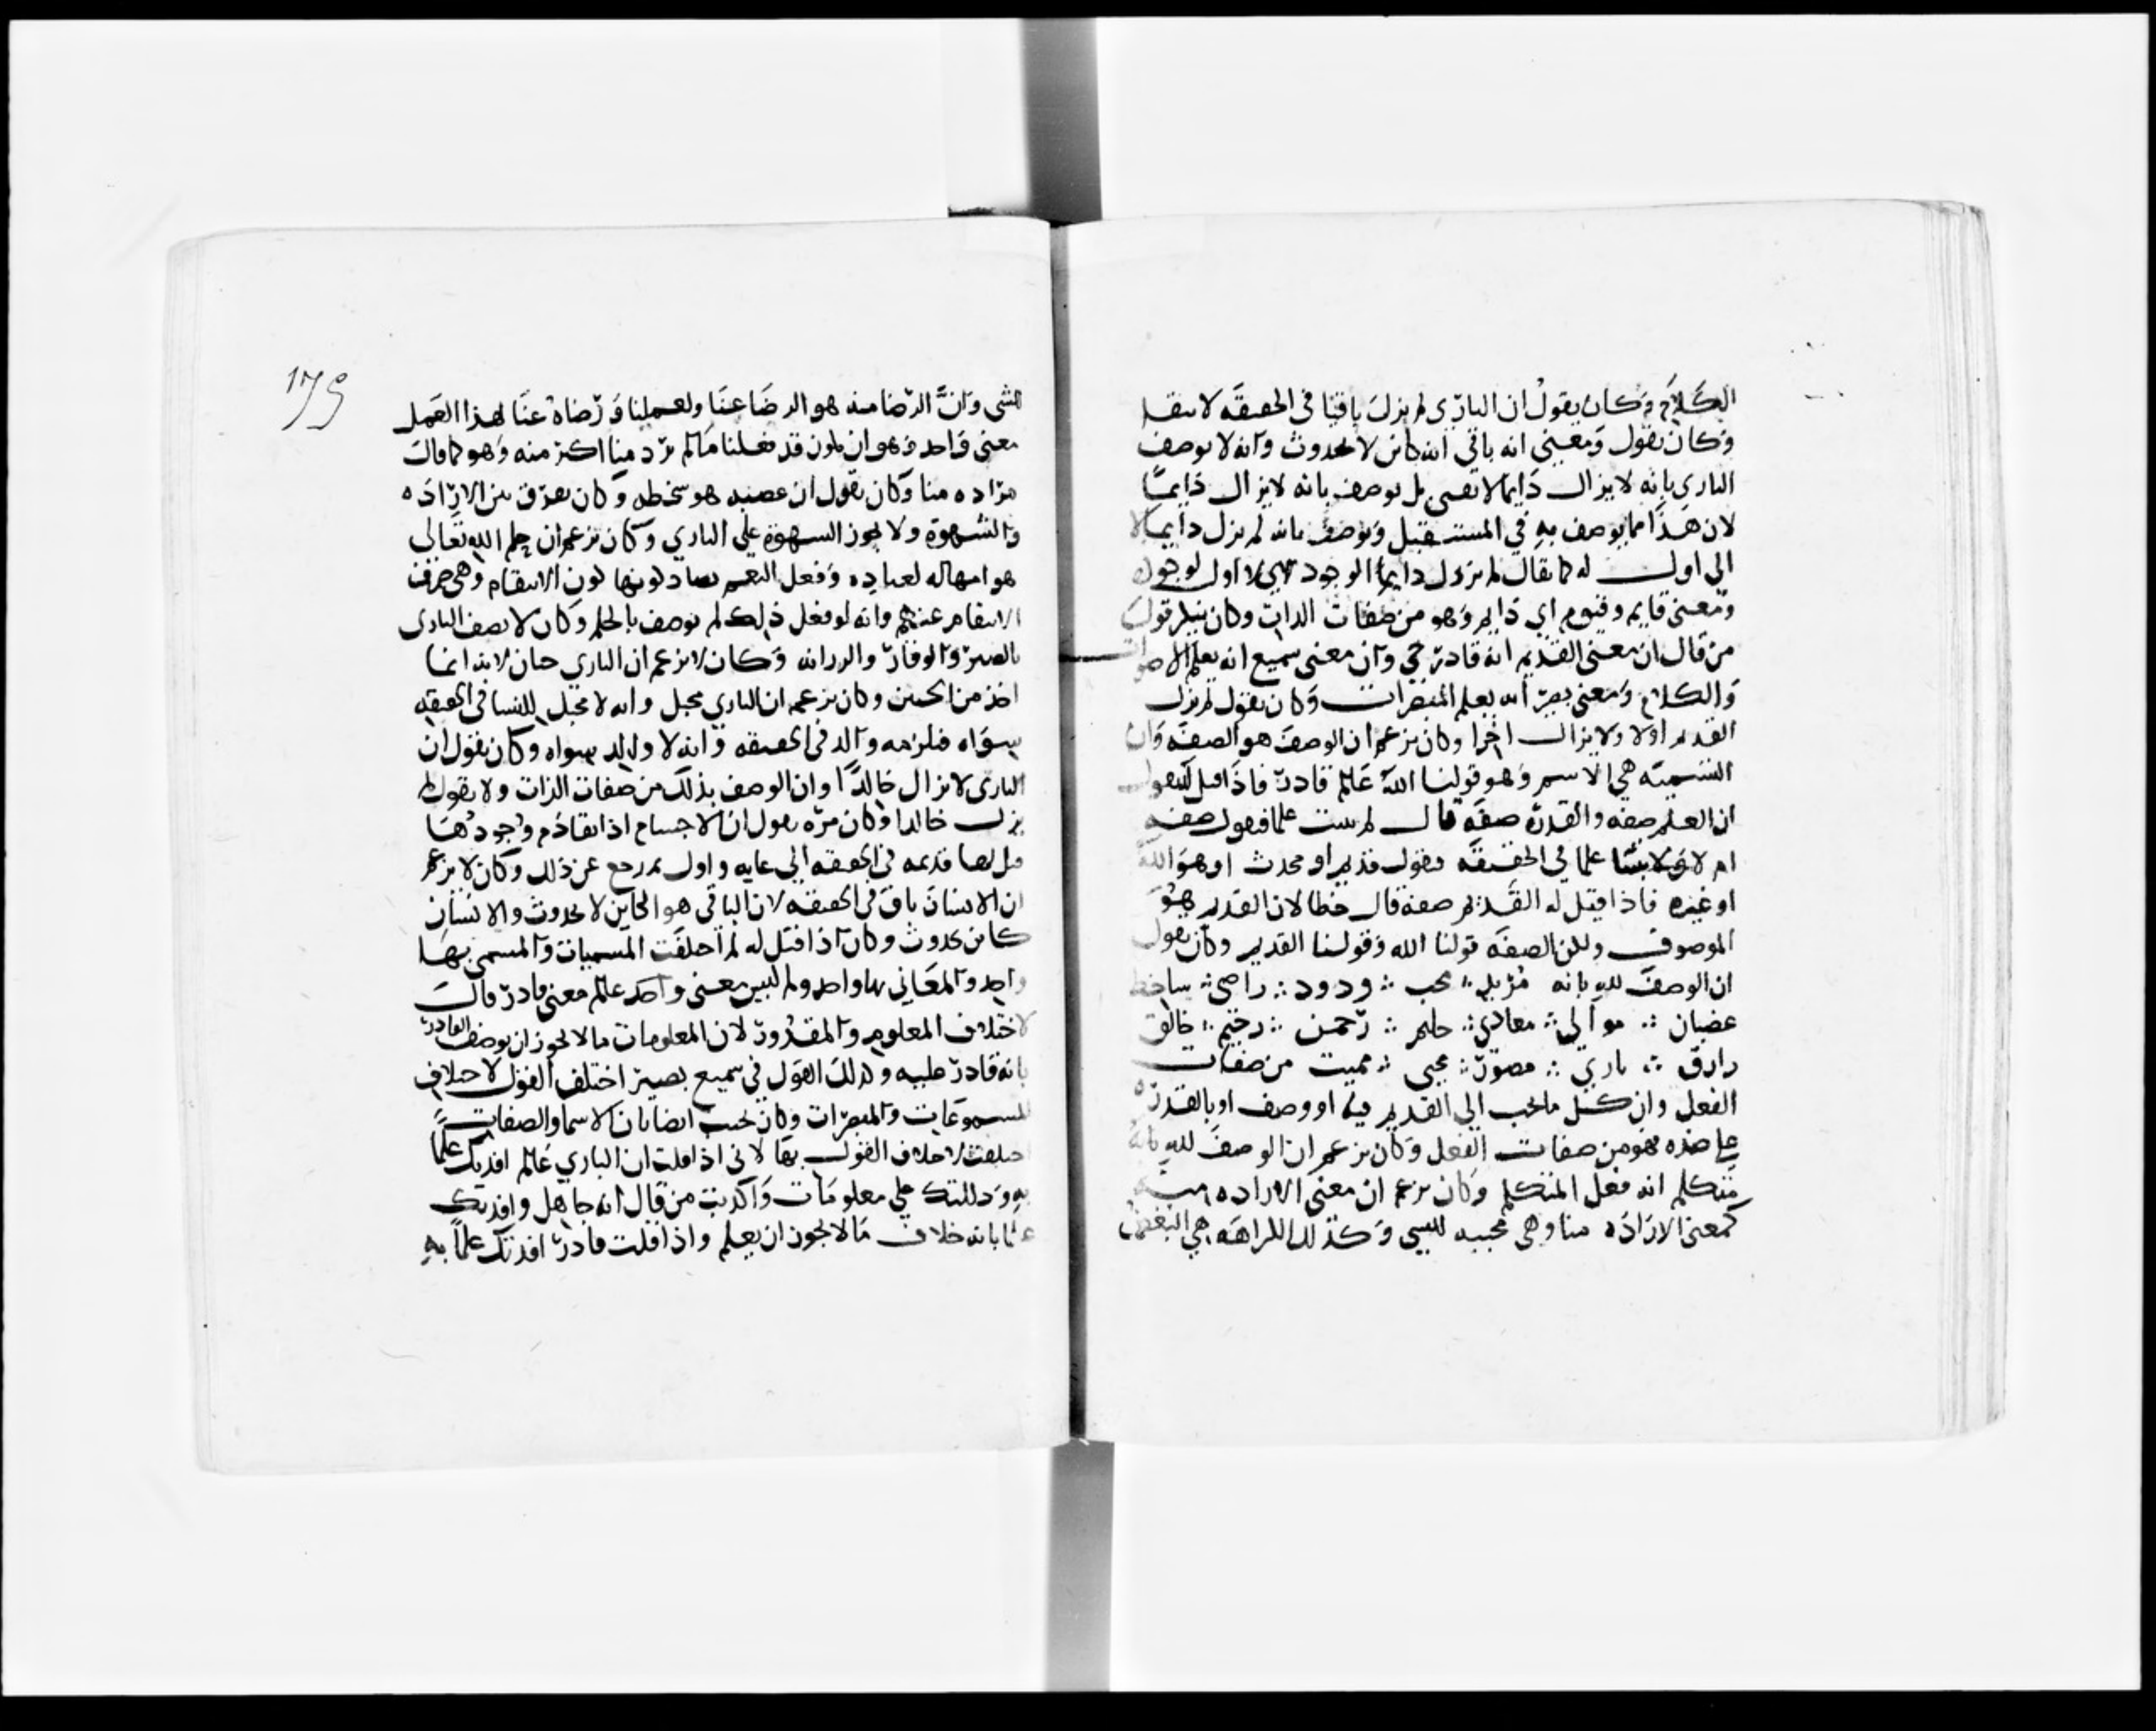 الكلام وكان يقول ان الباري لم يزل باقيا في الحقيقه لا ببقا
وكان يقول ومعنى انه باقي انه كاين لا بحدوث وانه لا يوصف
الباري بانه لا يزال دايما لا بل يوصف بانه لا يزال دايما
لان هذا مما يوصف به في المستقبل ويوصف بانه لم يزل دايما لا
الى اول له كما يقال لم يزل دايم الوجود اي لا اول لوجوده
ومعنى قايم وقيوم اي دايم وهو من صفات الذات وكان ينكر قول
من قال ان معنى القديم انه قادر حي وان معنى سميع انه يعلم الاصوات
والكلام ومعنى بصير انه يعلم المبصرات وكان يقول لم يزل
القديم اولا ولا يزال اخرا وكان يزعم ان الوصف هو الصفه وان
التسميه هي الاسم وهو قولنا الله عالم قادر فاذا قيل له تقول
ان العلم صفه والقدره صفه قال لم نثبت علما فنقول صفه
ام لا ولا ثبتنا علما في الحقيقه فنقول قديم او محدث او هو الله
او غيره فاذا قيل له القديم صفه قال خطا لان القديم هو
الموصوف ولكن الصفه قولنا الله وقولنا القديم وكان يقول
ان الوصف لله بانه مريد محب ودود راضي ساخط
غضبان موالي معادي حليم رحمن رحيم خالق
رازق باري مصور محيي مميت من صفات
الفعل وان كل ما يجب الى القديم فيه او وصف او بالقدره
على ضده فهو من صفات الفعل وكان يزعم ان الوصف لله بانه
متكلم انه فعل المتكلم وكان يزعم ان معنى الاراده منه
كمعنى الاراده منا وهي محبته للشي وكذلك الكراهه هي البغض
١٦٩
للشي وان الرضا منه هو الرضا عنا ولعملنا ورضاه عنا لهذا العمل
معنى واحد وهو ان يكون قد فعلنا ما لم يرد منا اكثر منه وهو كما قال
مراده منا وكان يقول ان غضبه هو سخطه وكان يفرق بين الاراده
والشهوة ولا يجوز الشهوة على الباري وكان يزعم ان حلم الله تعالى
هو امهاله لعباده وفعل النعم كون الانتقام وهي صرف
الانتقام عنهم وانه لو فعل ذلك لم يوصف بالحلم وكان لا يصف الباري
بالصبر والوقار والرزانه وكان لا يزعم ان الباري حان لانه انما
اخذ من الحنين وكان يزعم ان الباري محبل وانه لا محبل للنسا في الحقيقه
سواه فلزمه والد في الحقيقه وانه لا والد سواه وكان يقول ان
الباري لا يزال خالدا وان الوصف بذلك من صفات الذات ولا يقول لم
يزل خالدا وكان مره يقول ان الاجسام اذا تقادم وجودها
قيل لها قديمه في الحقيقه الى غايه واول ثم رجع عن ذلك وكان لا يزعم
ان الانسان باق في الحقيقه لان الباقي هو الكاين لا بحدوث والانسان
كاين بحدوث وكان اذا قيل له لم اختلفت المسميات والمسمى بها
واحد والمعاني بها واحد ولم ليس معنى واحد عالم معنى قادر قال
لاختلاف المعلوم والمقدور لان المعلومات ما لا يجوز ان يوصف القادر
بانه قادر عليه وكذلك القول في سميع بصير اختلف القول لاختلاف
المسموعات والمبصرات وكان يجيب ايضا بان الاسما والصفات
اختلفت لاختلاف القول بها لاني اذا قلت ان الباري عالم افدتك علما
به ودللتك على معلومات واكذبت من قال انه جاهل وافدتك
علما بانه خلاف ما لا يجوز ان يعلم واذا قلت قادر افدتك علما به